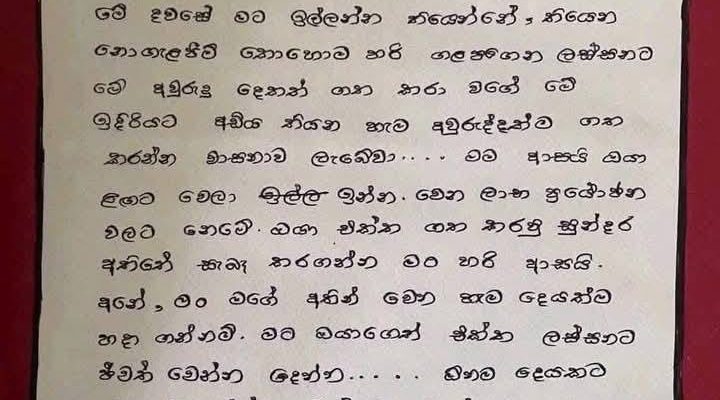 මේ දවසේ මට ඉල්ලන්න තියෙන්නේ, තියෙන
නොගැලපීම් කොහොම හරි ගලපගෙන ලස්සනට
මේ අවුරුදු දෙකත් ගත කරා වගේ මේ
ඉදිරියට අඩිය තියන හැම අවුරුද්දක්ම ගත
කරන්න වාසනාව ලැබේවා.... මම ආසයි ඔයා
ළඟට වෙලා ඉල්ල ඉන්න. වෙන ලාභ ප්‍රයෝජන
වලට නෙමේ. ඔයා එක්ක ගත කරපු සුන්දර
අතීතේ සැබෑ කරගන්න මං හරි ආසයි.
අනේ, මං මගේ අතින් වෙන හැම දෙයක්ම
හදා ගන්නම්. මට ඔයාගෙත් එක්ක ලස්සනට
ජීවත් වෙන්න දෙන්න..... ඔනම දෙයකට